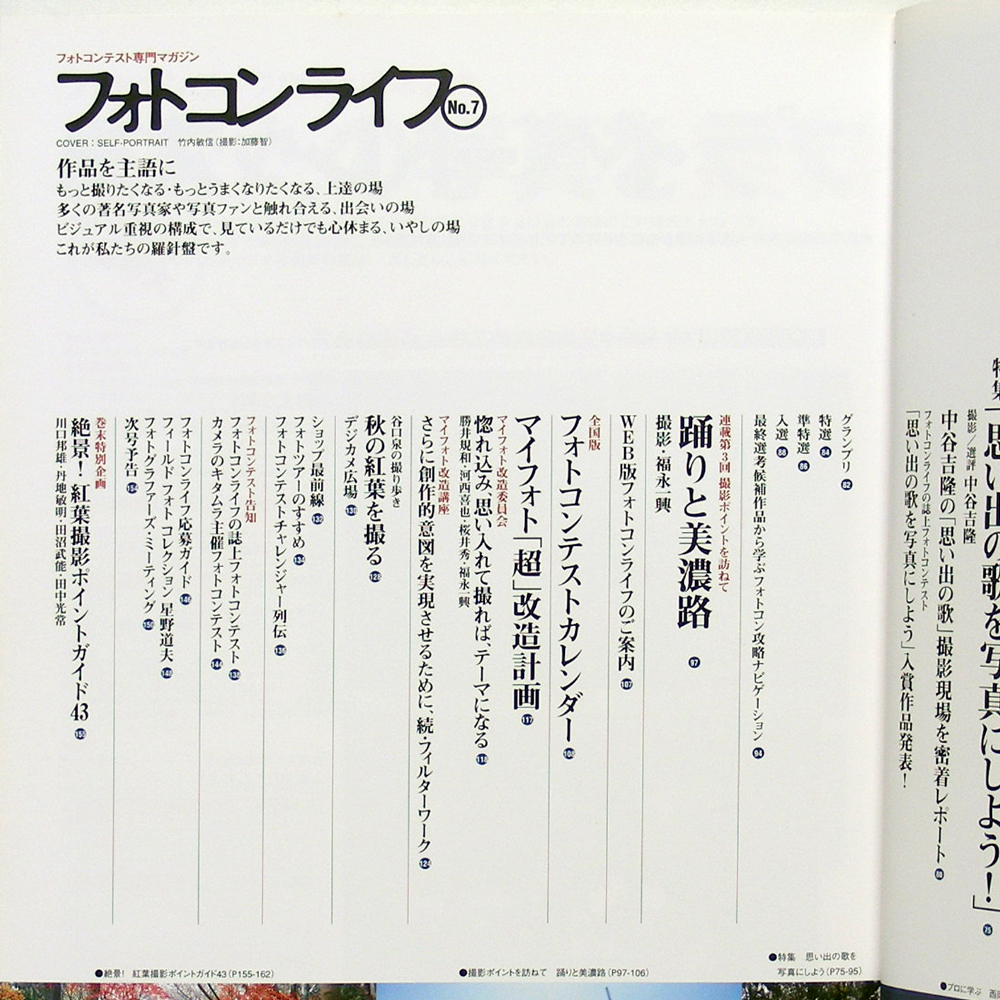 フォトコンテスト専門マガジン
フォトコンライフ No.7
COVER：SELF-PORTRAIT　竹内敏信（撮影：加藤智）
作品を主語に
もっと撮りたくなる・もっとうまくなりたくなる、上達の場
多くの著名写真家や写真ファンと触れ合える、出会いの場
ビジュアル重視の構成で、見ているだけでも心休まる、いやしの場
これが私たちの羅針盤です。
特集「思い出の歌を写真にしよう！」75
撮影／選評 中谷吉隆
中谷吉隆の「思い出の歌」撮影現場を密着レポート
フォトコンライフの誌上フォトコンテスト
「思い出の歌を写真にしよう」入賞作品発表！
グランプリ 82
特選 84
準特選 86
入選 88
最終選考候補作品から学ぶフォトコン攻略ナビゲーション 94
連載第3回 撮影ポイントを訪ねて
踊りと美濃路 97
撮影・福永一興
WEB版フォトコンライフのご案内 107
全国版
フォトコンテストカレンダー 108
マイフォト「超」改造計画 117
マイフォト改造委員会
惚れ込み、思い入れて撮れば、テーマになる 118
勝井規和・河西喜也・桜井秀・福永一興
マイフォト改造講座
さらに創作的意図を実現させるために、続・フィルターワーク 124
谷口泉の撮り歩き
秋の紅葉を撮る 128
デジカメ広場 130
ショップ最前線 132
フォトツアーのすすめ 134
フォトコンテストチャレンジャー列伝 136
フォトコンテスト告知
フォトコンライフの誌上フォトコンテスト 138
カメラのキタムラ主催フォトコンテスト 144
フォトコンライフ応募ガイド 146
フィールド フォト コレクション 星野道夫 148
フォトグラファーズ・ミーティング 150
次号予告 154
巻末特別企画
絶景！紅葉撮影ポイントガイド43 155
川口邦雄・丹地敏明・田沼武能・田中光常
●絶景！ 紅葉撮影ポイントガイド43（P155-162）
●撮影ポイントを訪ねて　踊りと美濃路（P97-106）
●特集　思い出の歌を
写真にしよう（P75-95）
●プロに学ぶ